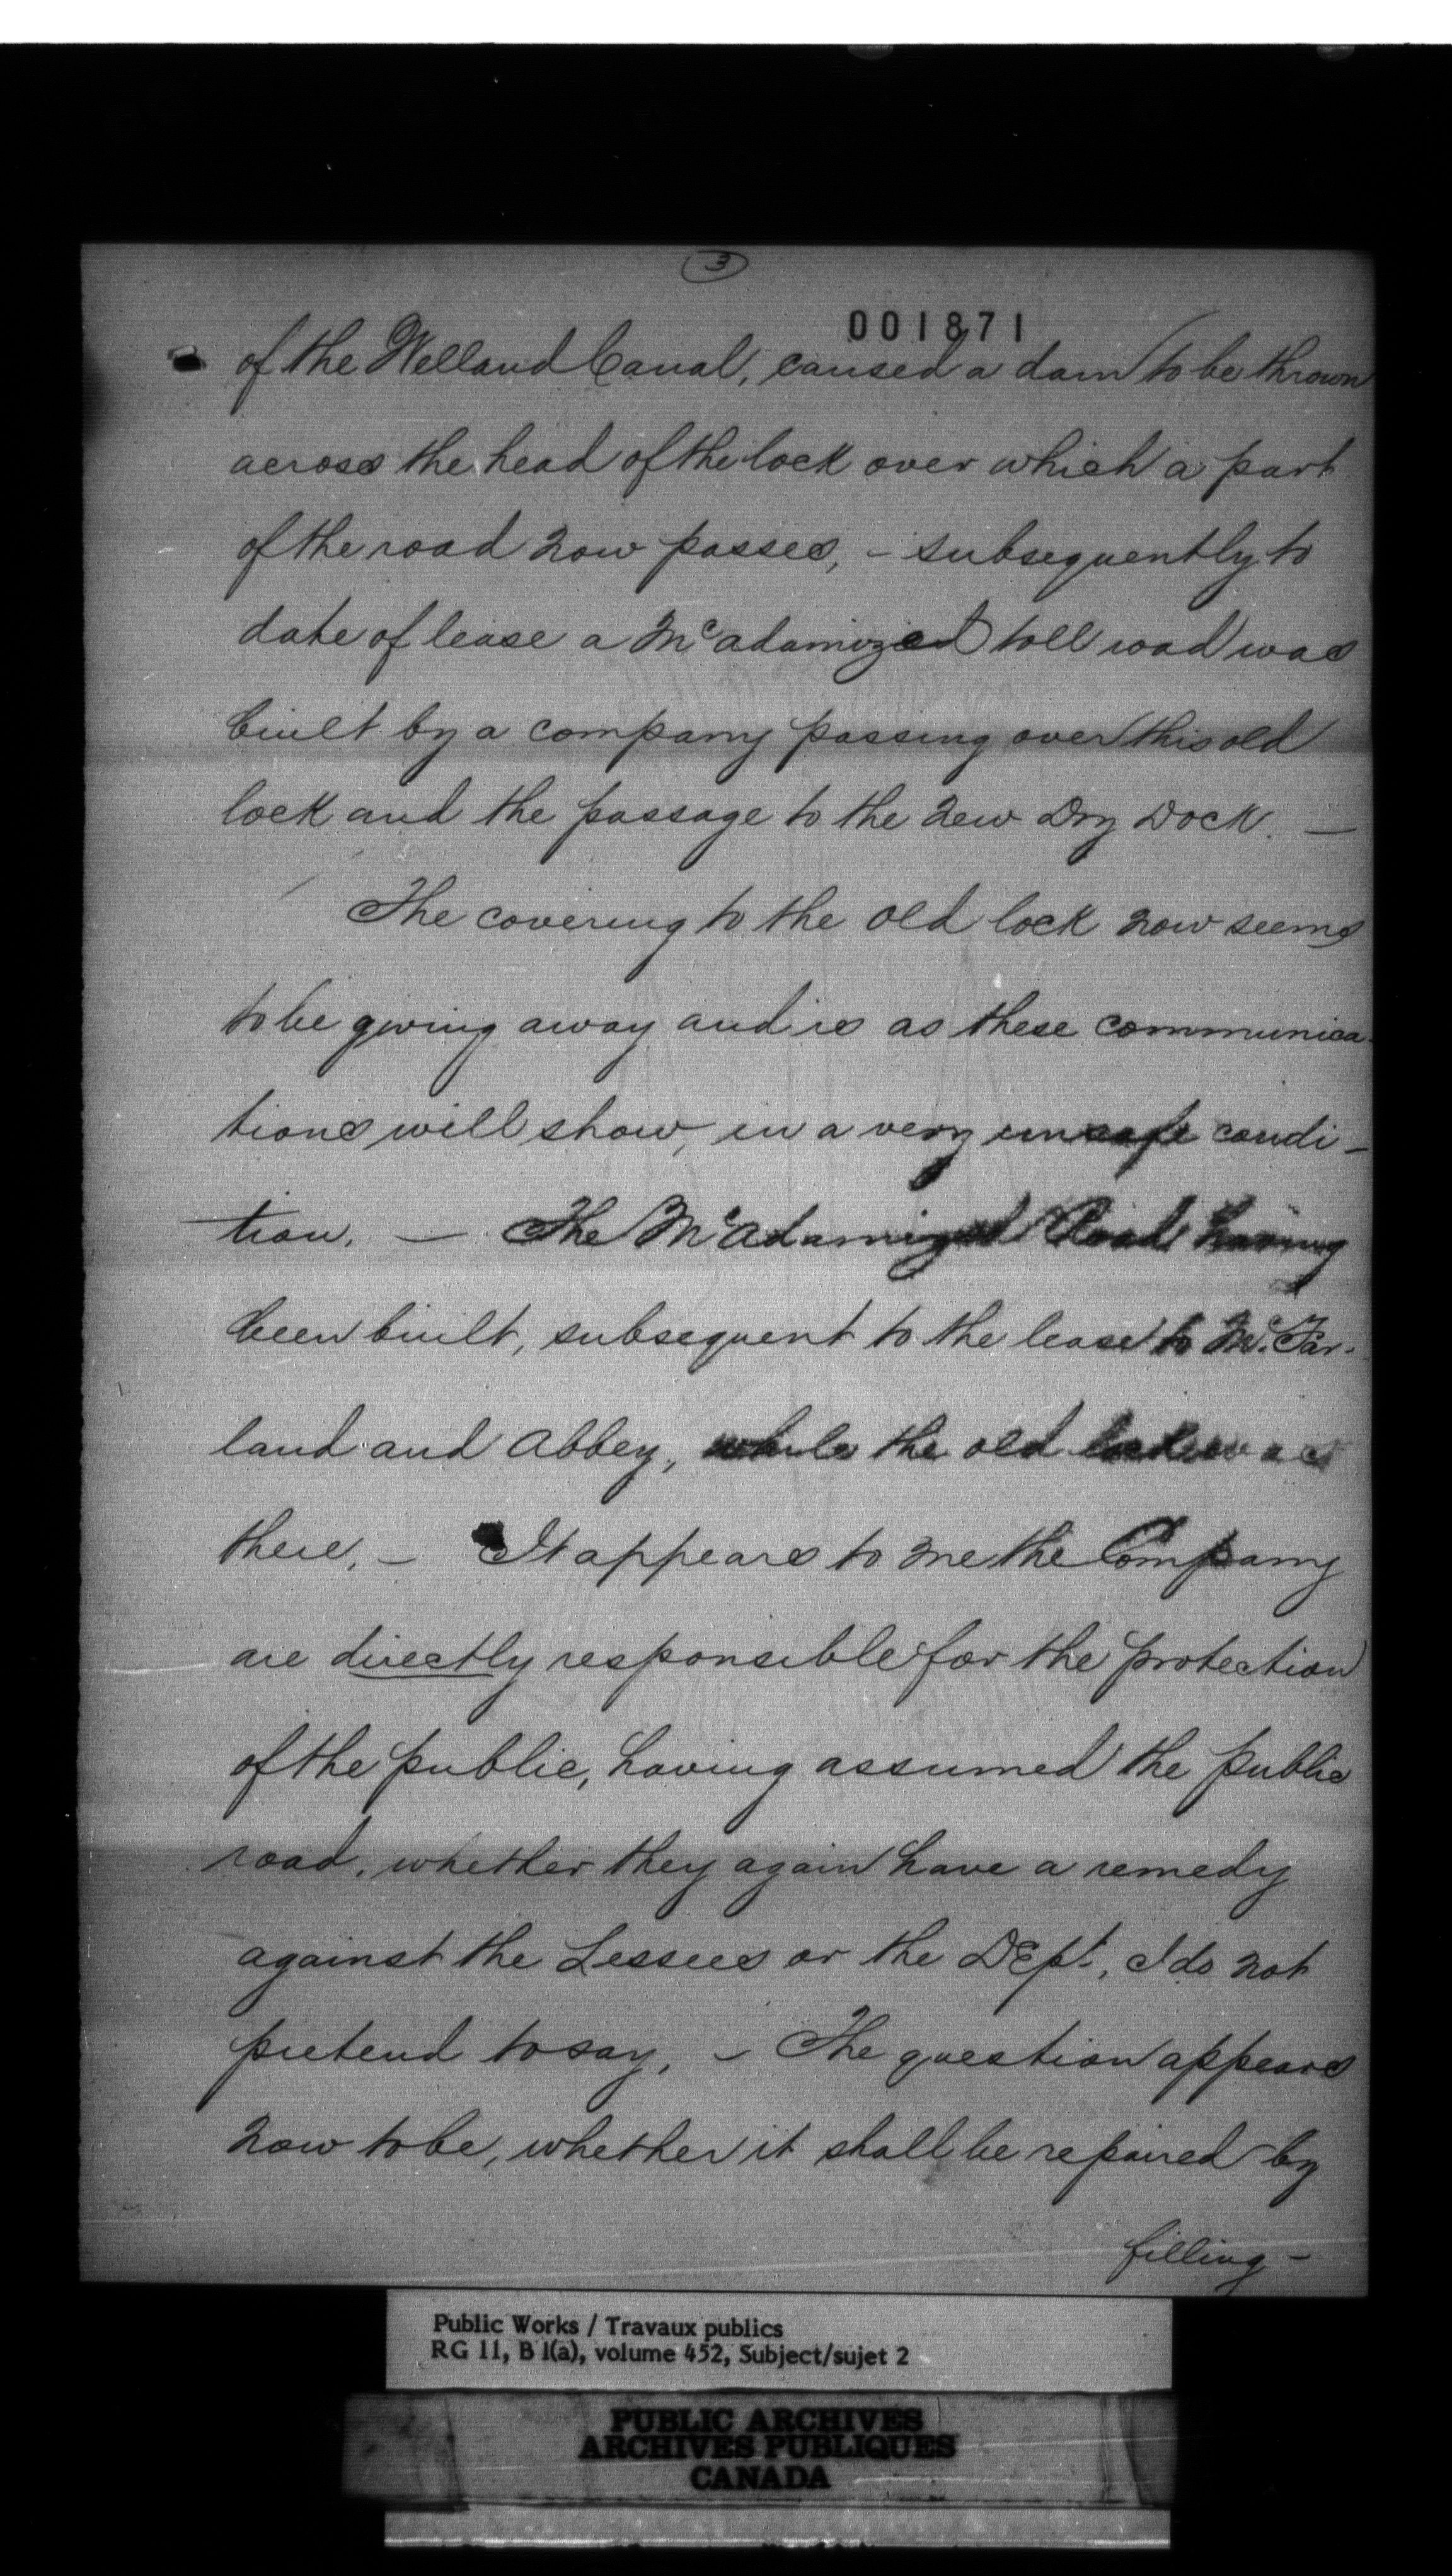 3
001871
of the Welland Canal, caused a dam to be thrown
across the head of the lock over which a part
of the road now passes, - subsequently to
date of lease a McAdamized toll road was
built by a company passing over this old
lock and the passage to the new Dry Dock. —
The covering to the old lock now seems
to be giving away and is as these communica-
tions will show, in a very unsafe condi-
tion. — The McAdamized Road having
been built, subsequent to the lease to McFar-
land and Abbey, while the old lock was
there. - It appears to me the Company
are directly responsible for the protection
of the public, having assumed the public
road, whether they again have a remedy
against the Lessees or the Dept, I do not
pretend to say. - The question appears
now to be, whether it shall be repaired by
filling -
Public Works / Travaux publics
RG 11, B 1(a), volume 452, Subject/sujet 2
PUBLIC ARCHIVES
ARCHIVES PUBLIQUES
CANADA